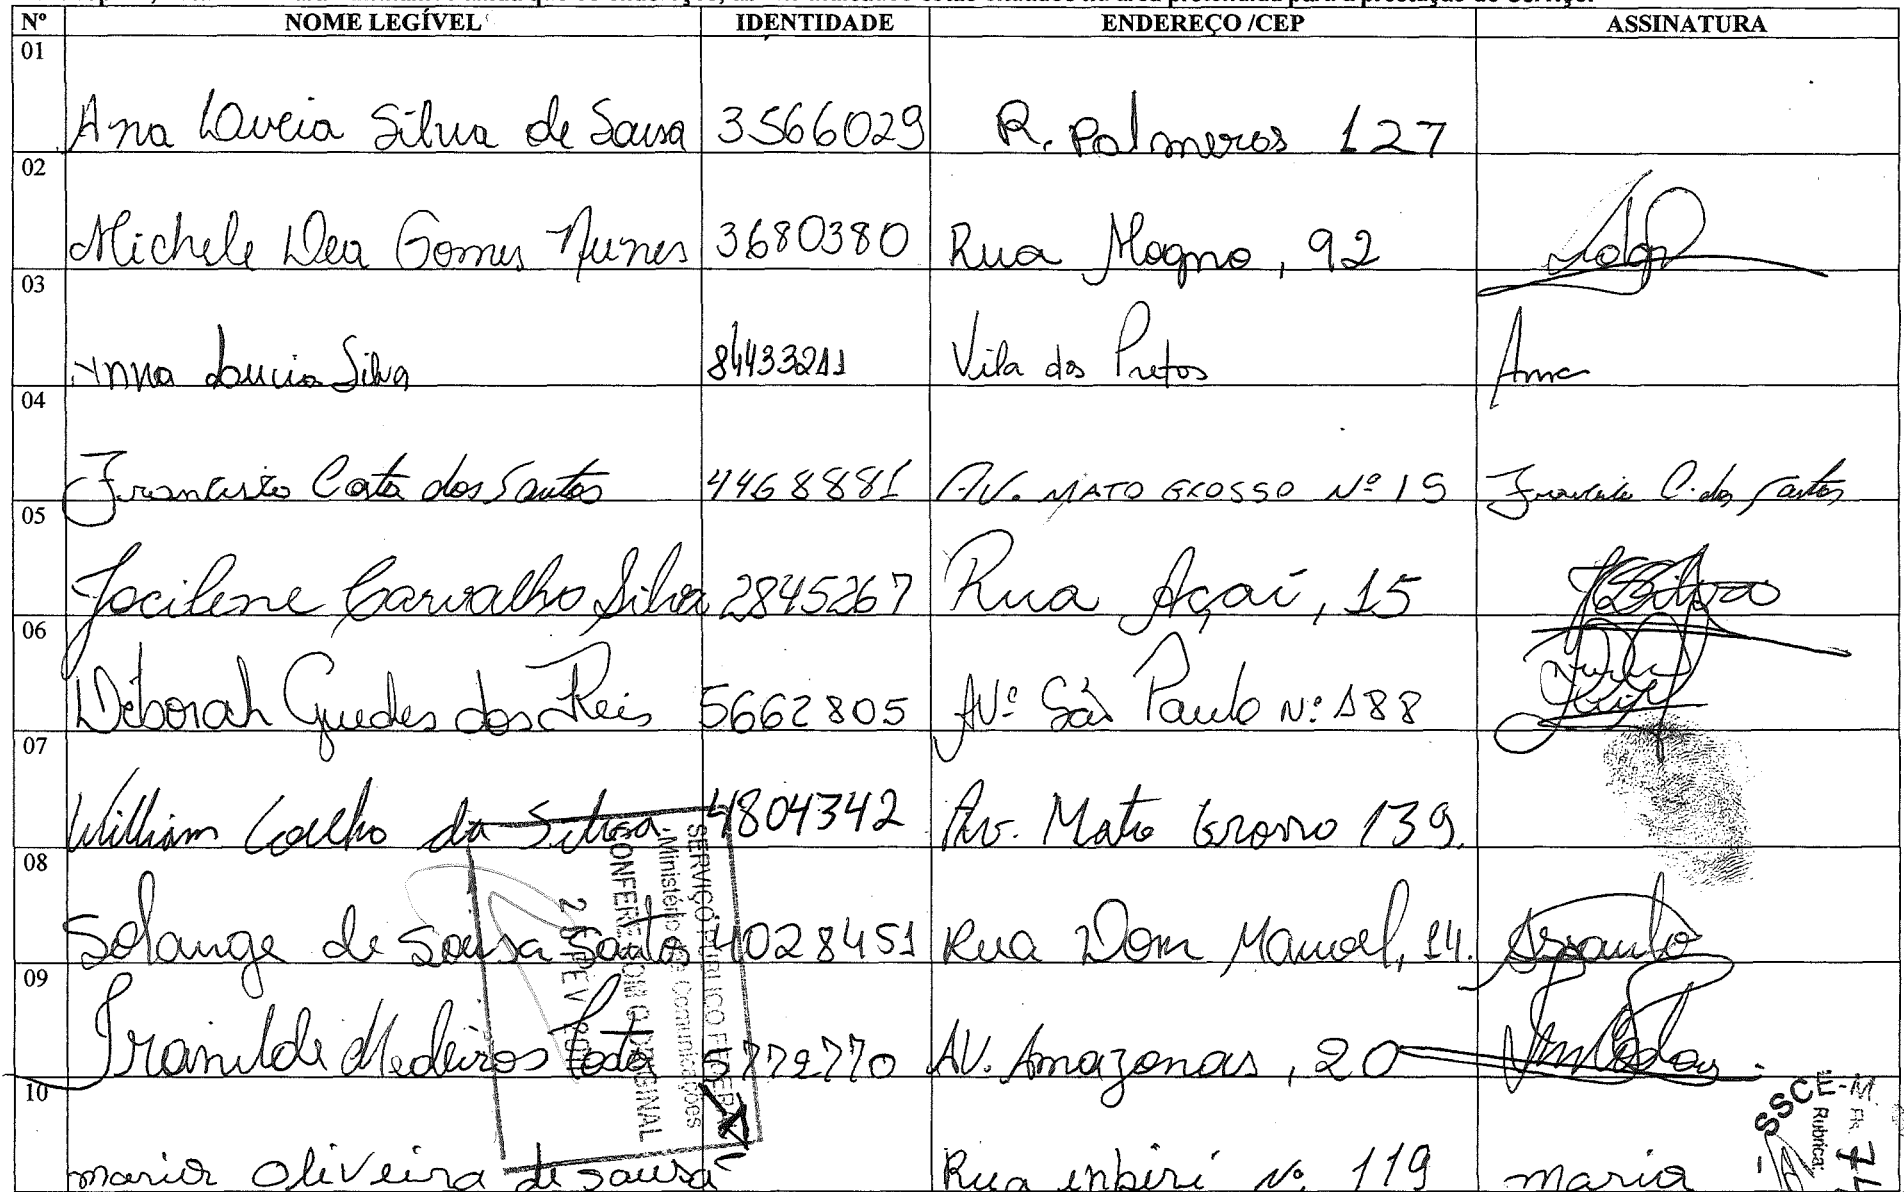 Nº NOME LEGÍVEL IDENTIDADE ENDEREÇO /CEP ASSINATURA
01 Ana Lúcia Silva de Sousa 3566029 R. Palmeros 127
02 Michele Dea Gomes Nunes 3680380 Rua Magno, 92
03 Anna Lucia Silva 84433211 Vila dos Pretos Anna
04 Francisco Costa dos Santos 4468881 AV. MATO GROSSO Nº 15 Francisco C. dos Santos
05 Jocilene Carvalho Silva 2845267 Rua Açaí, 15
06 Déborah Guedes dos Reis 5662805 AVº São Paulo Nº 188
07 William Coelho da Silva 4804342 Av. Mato Grosso 139.
08 Solange de Sousa Santos 4028451 Rua Dom Manoel, 14.
09 Iranilde Medeiros Costa 5772770 AV. Amazonas, 20
10 maria Oliveira de sousa Rua inbiri Nº 119 maria
SERVIÇO PÚBLICO FEDERAL
Ministério das Comunicações
CONFERE COM O ORIGINAL
SSCE-M.
Rubrica: